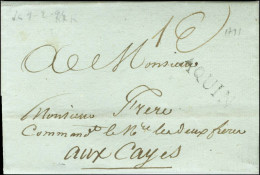 1791
AQUIN
à Monsieur
Monsieur Frere
Commandt le Nre les deux freres
aux Cayes